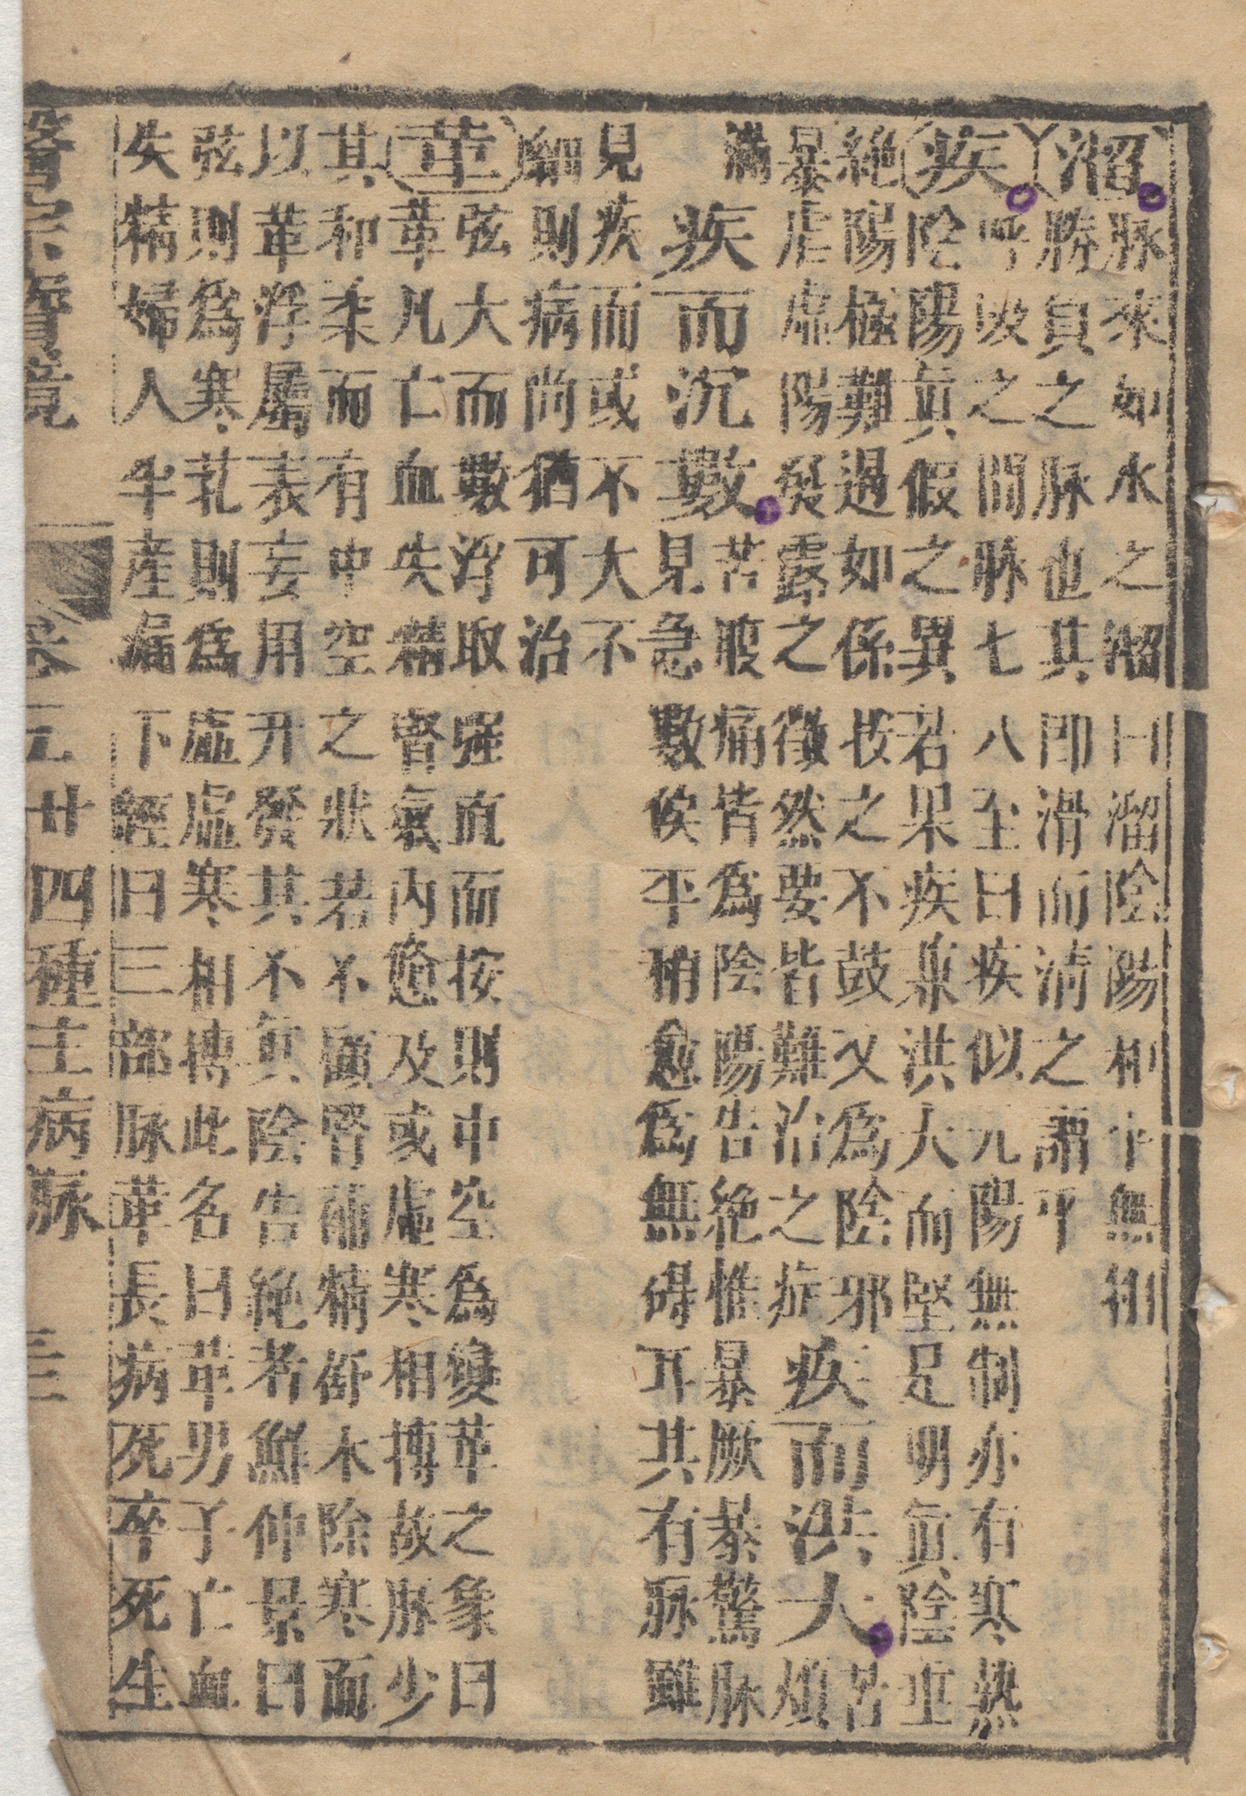 溜脉來如水之溜曰溜陰陽和平無刑
勝負之脉也其即滑而清之謂乎
疾呼吸之間脉七八至曰疾似元陽無制亦有寒熱
陰陽真假之異若果疾兼洪大而堅是明真陰垂
絶陽極難過如係按之不鼓又為陰邪
暴虐虛陽發露之徵然要皆難治之症疾而洪大苦煩
滿疾而沉數苦腹痛皆為陰陽告絶惟暴厥暴驚脉
見急數俟平稍愈為無碍耳共有脉雖
見疾而或不大不
細則病尚猶可治
革弦大而數浮取强直而按則中空為變革之象曰
革凡亡血失精腎氣內憊及或虛寒相搏故脉少
其和柔而有中空之狀若不顧腎補精舒木除寒而
以革浮屬表妄用升發其不真陰告絶者鮮仲景曰
弦則為寒芤則為虛虛寒相搏此名曰革男子亡血
失精婦人半產漏下經曰三部脉革長病死卒死生
醫宗寶鏡 卷二 廿四種主病脉 三三